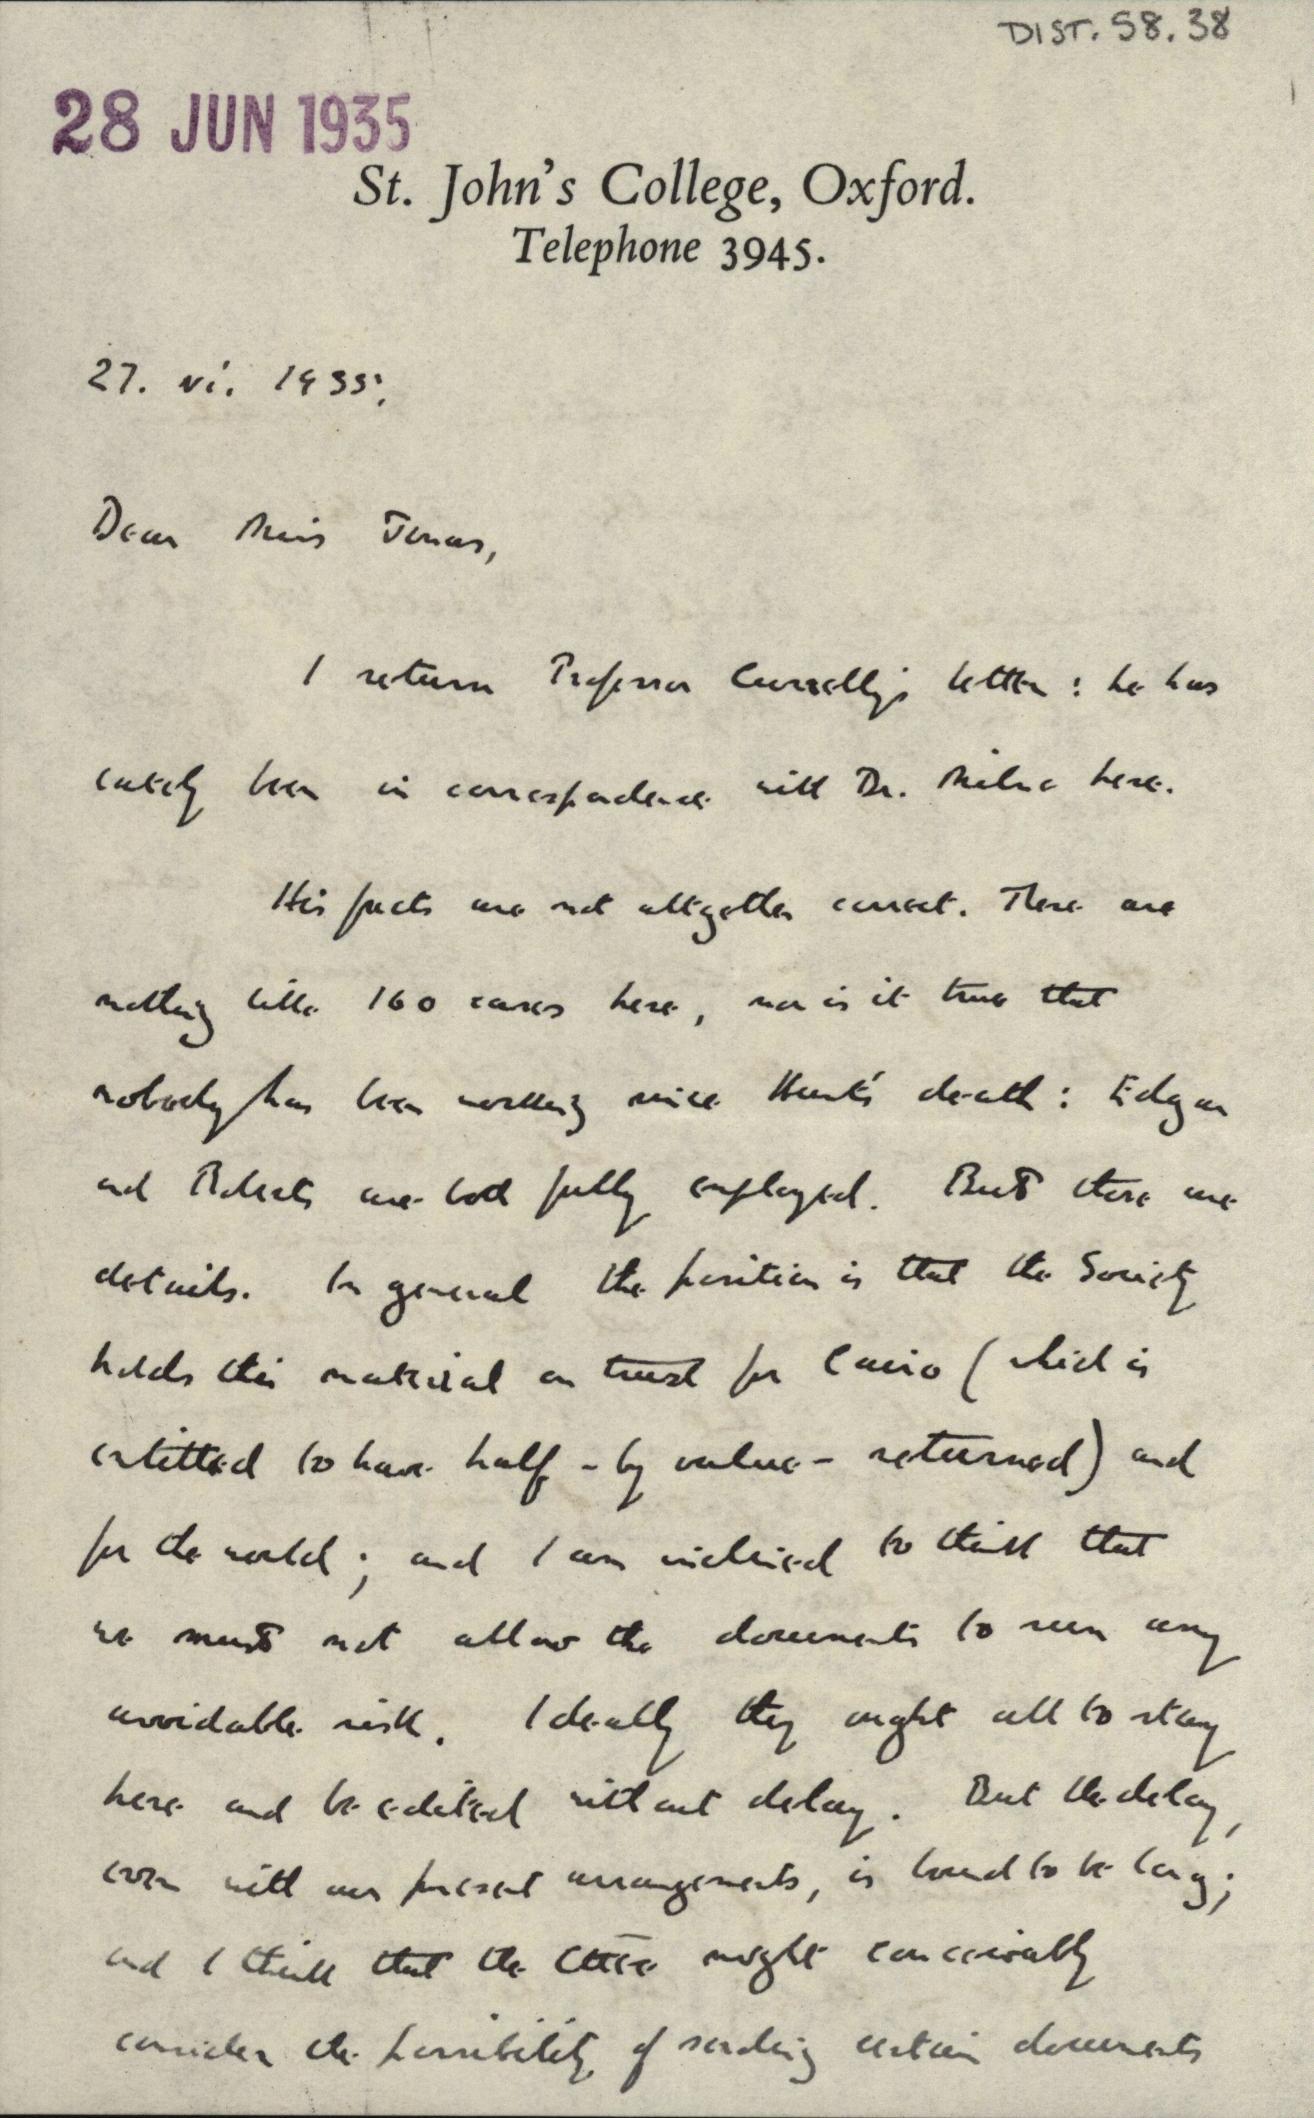 DIST. 58.38
28 JUN 1935
St. John's College, Oxford.
Telephone 3945.
27. vi. 1935.
Dear Miss Jonas,
I return Professor Currelly's letter : he has
lately been in correspondence with Dr. Milne here.
His facts are not altogether correct. There are
nothing like 160 cases here, nor is it true that
nobody has been working since Hunt's death : Edgar
and Roberts are both fully employed. But these are
details. In general the position is that the Society
holds this material on trust for Cairo (which is
entitled to have half - by value - returned) and
for the world ; and I am inclined to think that
we must not allow the documents to run any
avoidable risk. Ideally they ought all to stay
here and be edited without delay. But the delay,
even with our present arrangements, is bound to be long ;
and I think that the Cttee might conceivably
consider the possibility of sending certain documents